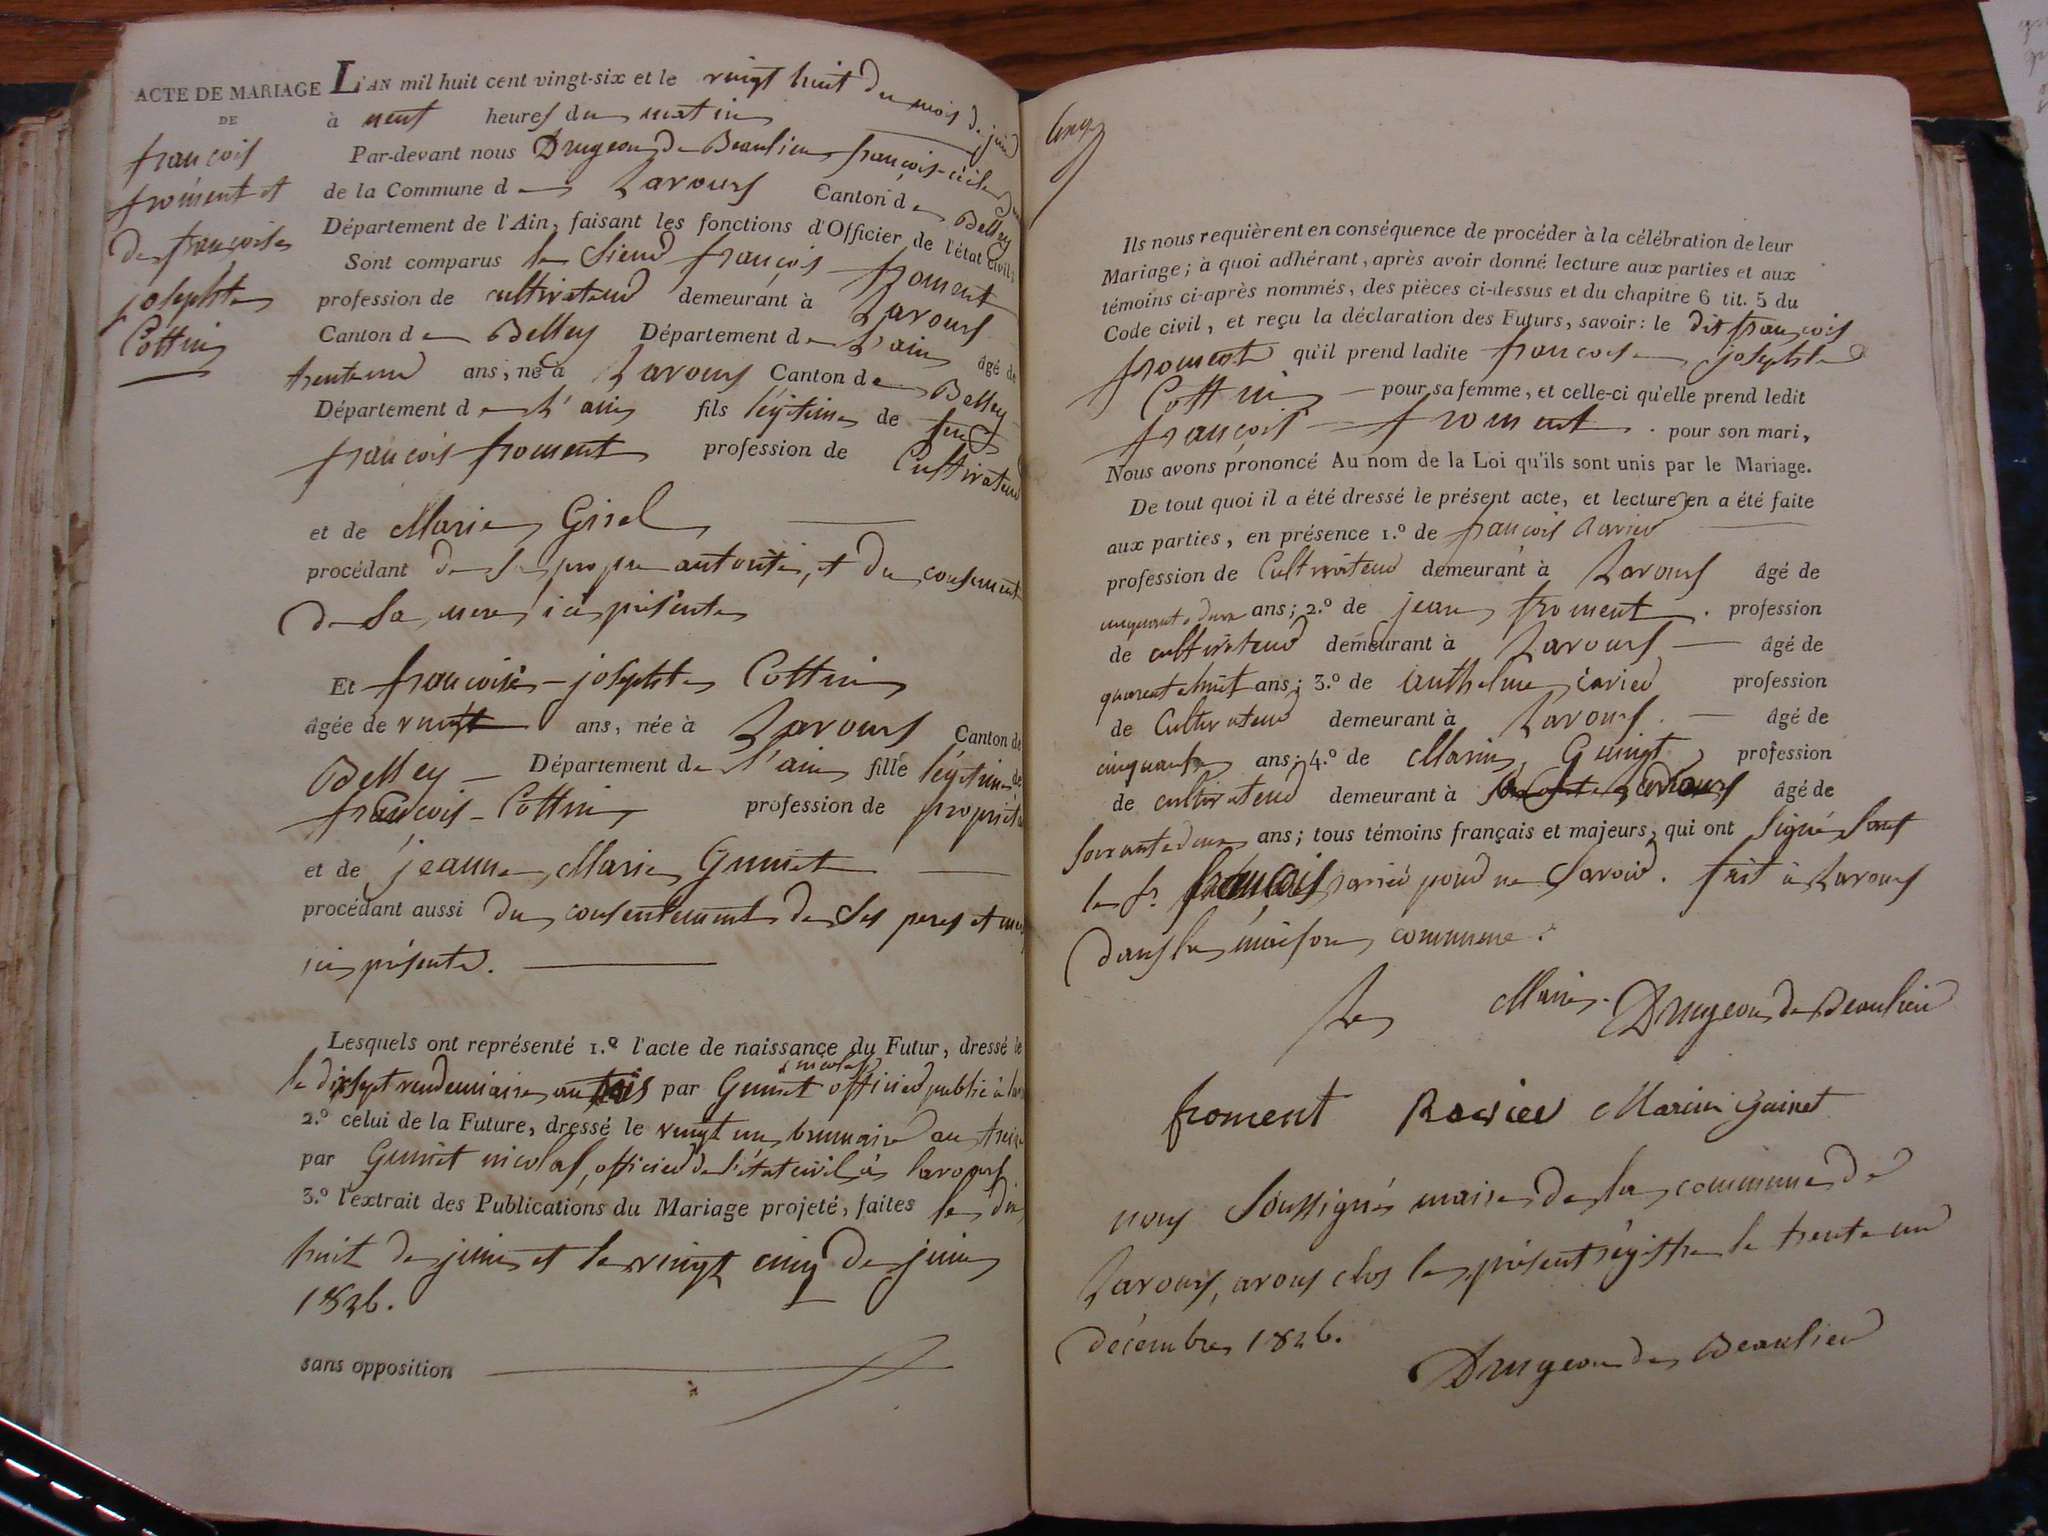 ACTE DE MARIAGE
DE
françois
froment et
de françoise
josephte
Cottin
L'AN mil huit cent vingt-six et le vingt huit du mois de juin
à neuf heures du matin
Par-devant nous Drugeon de Beaulieu françois-cécile
de la Commune de Lavours Canton de Belley
Département de l'Ain, faisant les fonctions d'Officier de l'état civil,
Sont comparus le Sieur françois froment
profession de cultivateur demeurant à Lavours
Canton de Belley Département de L'ain âgé de
trente un ans, né à Lavours Canton de Belley
Département de L'ain fils légitime de feu
françois froment profession de Cultivateur
et de Marie Girel
procédant de sa propre autorité, et du consentement
de Sa mere ici présente
Et françoise-josephte Cottin
âgée de vingt ans, née à Lavours Canton de
Belley Département de L'ain fille légitime de
françois-Cottin profession de propriétaire
et de jeanne Marie Guinet
procédant aussi du consentement de Ses peres et mere
ici présents.
Lesquels ont représenté 1.º l'acte de naissance du Futur, dressé le
le dixsept vendemiaire an trois par Guinet nicolas officier public à
2.º celui de la Future, dressé le vingt un brumaire an treize
par Guinet nicolas, officier de l'état civil à lavours
3.º l'extrait des Publications du Mariage projeté, faites le dix
huit de juin et le vingt cinq de juin
1826.
sans opposition
Ils nous requièrent en conséquence de procéder à la célébration de leur
Mariage; à quoi adhérant, après avoir donné lecture aux parties et aux
témoins ci-après nommés, des pièces ci-dessus et du chapitre 6 tit. 5 du
Code civil, et reçu la déclaration des Futurs, savoir: le dit françois
froment qu'il prend ladite françoise josephte
Cottin pour sa femme, et celle-ci qu'elle prend ledit
françois froment. pour son mari,
Nous avons prononcé Au nom de la Loi qu'ils sont unis par le Mariage.
De tout quoi il a été dressé le présent acte, et lecture en a été faite
aux parties, en présence 1.º de françois Ravier
profession de Cultivateur demeurant à Lavours âgé de
cinquante deux ans; 2.º de jean froment. profession
de cultivateur demeurant à Lavours âgé de
quarente huit ans; 3.º de Anthelme ravier profession
de Cultivateur demeurant à Lavours. âgé de
cinquante ans; 4.º de Marin Guinet profession
de cultivateur demeurant à Lavours âgé de
soixante deux ans; tous témoins français et majeurs, qui ont Signé Sauf
le Sr. françois ravier pour ne Savoir. fait à Lavours
dans la maison commune.
Le Maire. Drugeon de Beaulieu
froment Ravier Marin Guinet
nous Soussigné maire de la commune de
Lavours, avons clos le présent régistre le trente un
décembre 1826.
Drugeon de Beaulieu